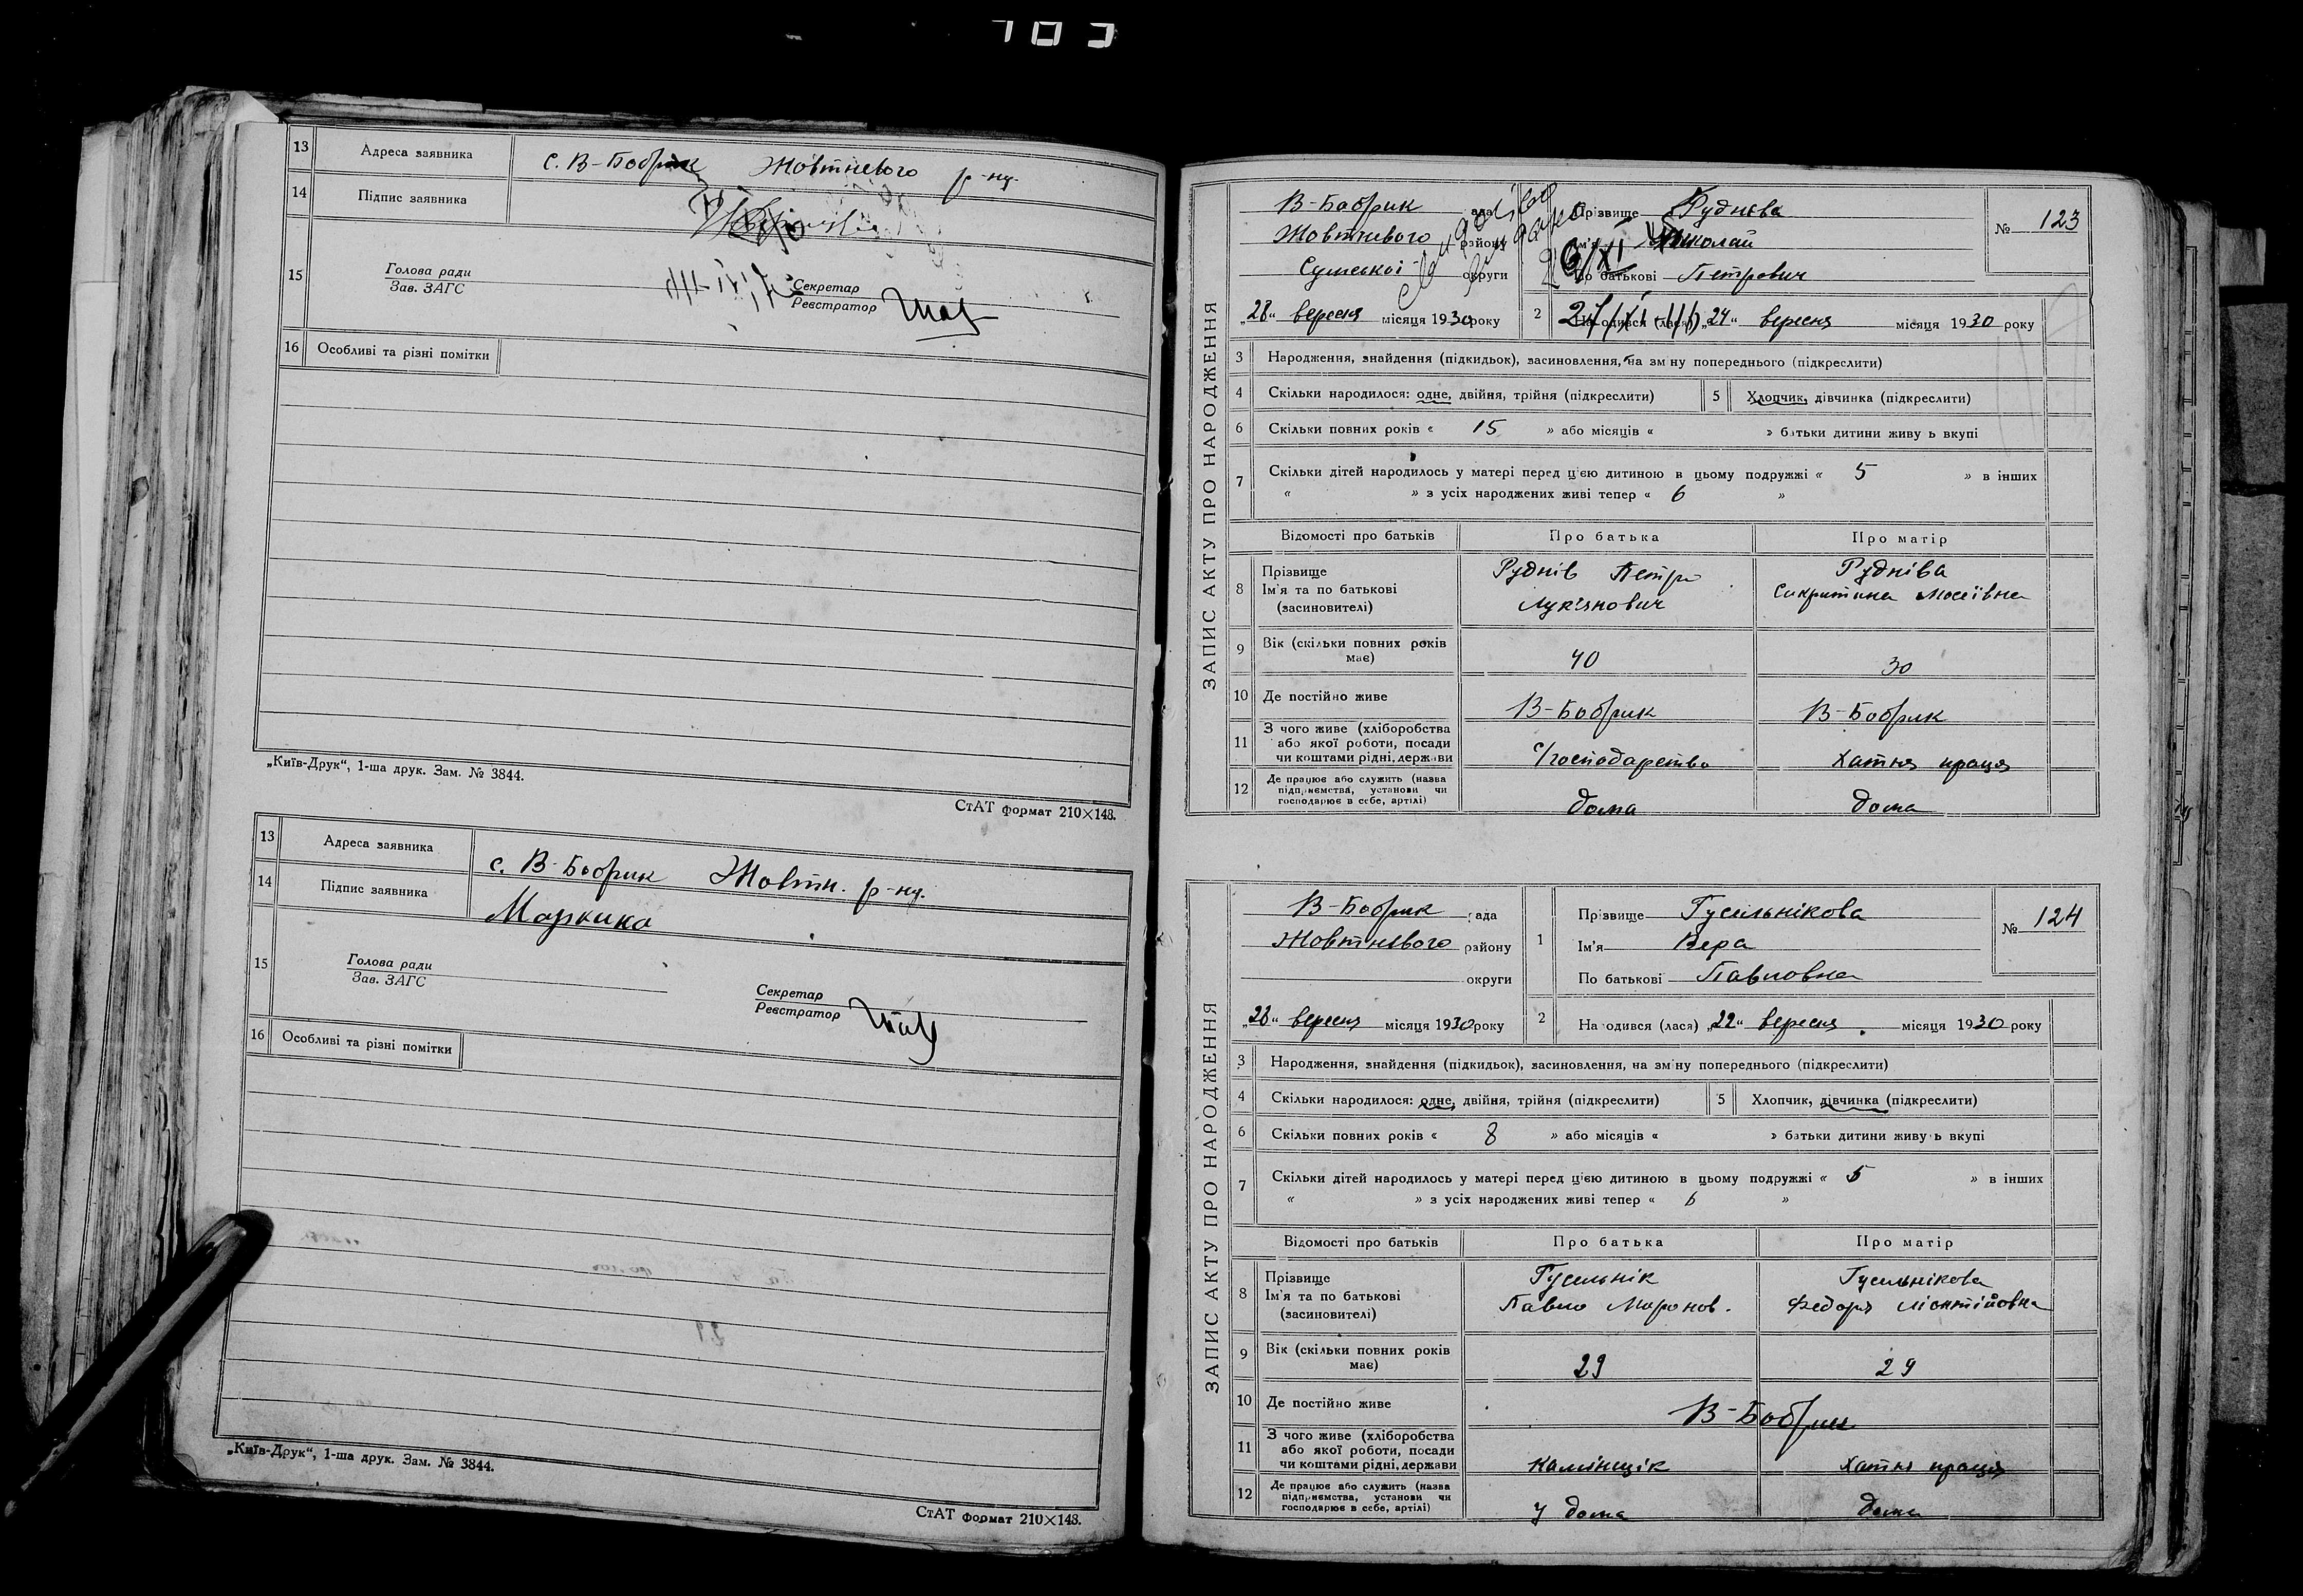 13 Адреса заявника с. В-Бобрик Жовтневого р-ну.
14 Підпис заявника
15 Голова ради
Зав. ЗАГС
Секретар
Реєстратор
16 Особливі та різні помітки
„Київ-Друк“, 1-ша друк. Зам. № 3844.
СтАТ формат 210×148.
13 Адреса заявника с. В-Бобрик Жовтн. р-ну.
14 Підпис заявника
15 Голова ради
Зав. ЗАГС
Секретар
Реєстратор
16 Особливі та різні помітки
„Київ-Друк“, 1-ша друк. Зам. № 3844.
СтАТ формат 210×148.
ЗАПИС АКТУ ПРО НАРОДЖЕННЯ
В-Бобрик рада
Жовтневого району
Сумської округи
„28“ вересня місяця 1930 року
Прізвище Руднєва
Ім'я Николай
По батькові Петрович
№ 123
2 „24“ вересня місяця 1930 року
3 Народження, знайдення (підкидьок), засиновлення, на зміну попереднього (підкреслити)
4 Скільки народилося: одне, двійня, трійня (підкреслити)
5 Хлопчик, дівчинка (підкреслити)
6 Скільки повних років « 15 » або місяців « » батьки дитини живуть вкупі
7 Скільки дітей народилось у матері перед цією дитиною в цьому подружжі « 5 » в інших
« » з усіх народжених живі тепер « 6 »
Відомості про батьків Про батька Про матір
8 Прізвище
Ім'я та по батькові
(засиновителі)
Руднів Петро
Лук'янович
Руднїва
Мосеївна
9 Вік (скільки повних років має) 40 30
10 Де постійно живе В-Бобрик В-Бобрик
11 З чого живе (хліборобства
або якої роботи, посади
чи коштами рідні, держави
с/господарство Хатня праця
12 Де працює або служить (назва
підприємства, установи чи
господарює в себе, артілі)
дома дома
ЗАПИС АКТУ ПРО НАРОДЖЕННЯ
В-Бобрик рада
Жовтневого району
округи
„28“ вересня місяця 1930 року
1 Прізвище Гусельнікова
Ім'я Вера
По батькові Павловна
№ 124
2 Народився (лася) „22“ вересня місяця 1930 року
3 Народження, знайдення (підкидьок), засиновлення, на зміну попереднього (підкреслити)
4 Скільки народилося: одне, двійня, трійня (підкреслити)
5 Хлопчик, дівчинка (підкреслити)
6 Скільки повних років « 8 » або місяців « » батьки дитини живуть вкупі
7 Скільки дітей народилось у матері перед цією дитиною в цьому подружжі « 5 » в інших
« » з усіх народжених живі тепер « 6 »
Відомості про батьків Про батька Про матір
8 Прізвище
Ім'я та по батькові
(засиновителі)
Гусельнік
Павло Миронов.
Гусельнікова
Федора Ліонтійовна
9 Вік (скільки повних років має) 29 29
10 Де постійно живе В-Бобрик
11 З чого живе (хліборобства
або якої роботи, посади
чи коштами рідні, держави
камінщік Хатня праця
12 Де працює або служить (назва
підприємства, установи чи
господарює в себе, артілі)
у дома дома